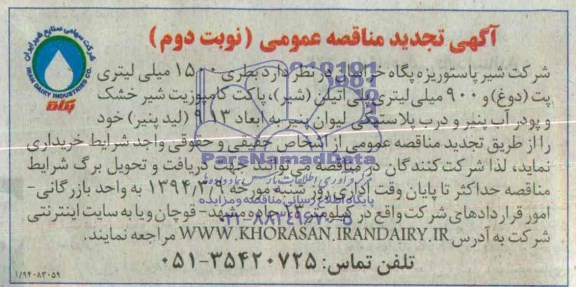 آگهی تجدید مناقصه عمومی (نوبت دوم)
شرکت سهامی صنایع شیر ایران
IRAN DAIRY INDUSTRIES CO.
پگاه
شرکت شیر پاستوریزه پگاه خراسان در نظر دارد بطری ۱۵۰۰ میلی لیتری
پت (دوغ) و ۹۰۰ میلی لیتری پلی اتیلن (شیر)، پاکت کامپوزیت شیر خشک
و پودر آب پنیر و درب پلاستیکی لیوان پنیر به ابعاد ۱۳*۹ (لید پنیر) خود
را از طریق تجدید مناقصه عمومی از اشخاص حقیقی و حقوقی واجد شرایط خریداری
نماید، لذا شرکت کنندگان در مناقصه می توانند جهت دریافت و تحویل برگ شرایط
مناقصه حداکثر تا پایان وقت اداری روز شنبه مورخه ۱۳۹۴/۳/۹ به واحد بازرگانی
امور قراردادهای شرکت واقع در کیلومتر جاده مشهد- قوچان و یا به سایت اینترنتی
شرکت به آدرس WWW.KHORASAN.IRANDAIRY.IR مراجعه نمایند.
تلفن تماس: ۳۵۴۲۰۷۲۵-۰۵۱
۱/۹۴۰۸۳۰۵۹
ParsNamadData
پایگاه اطلاع رسانی مناقصه و مزایده